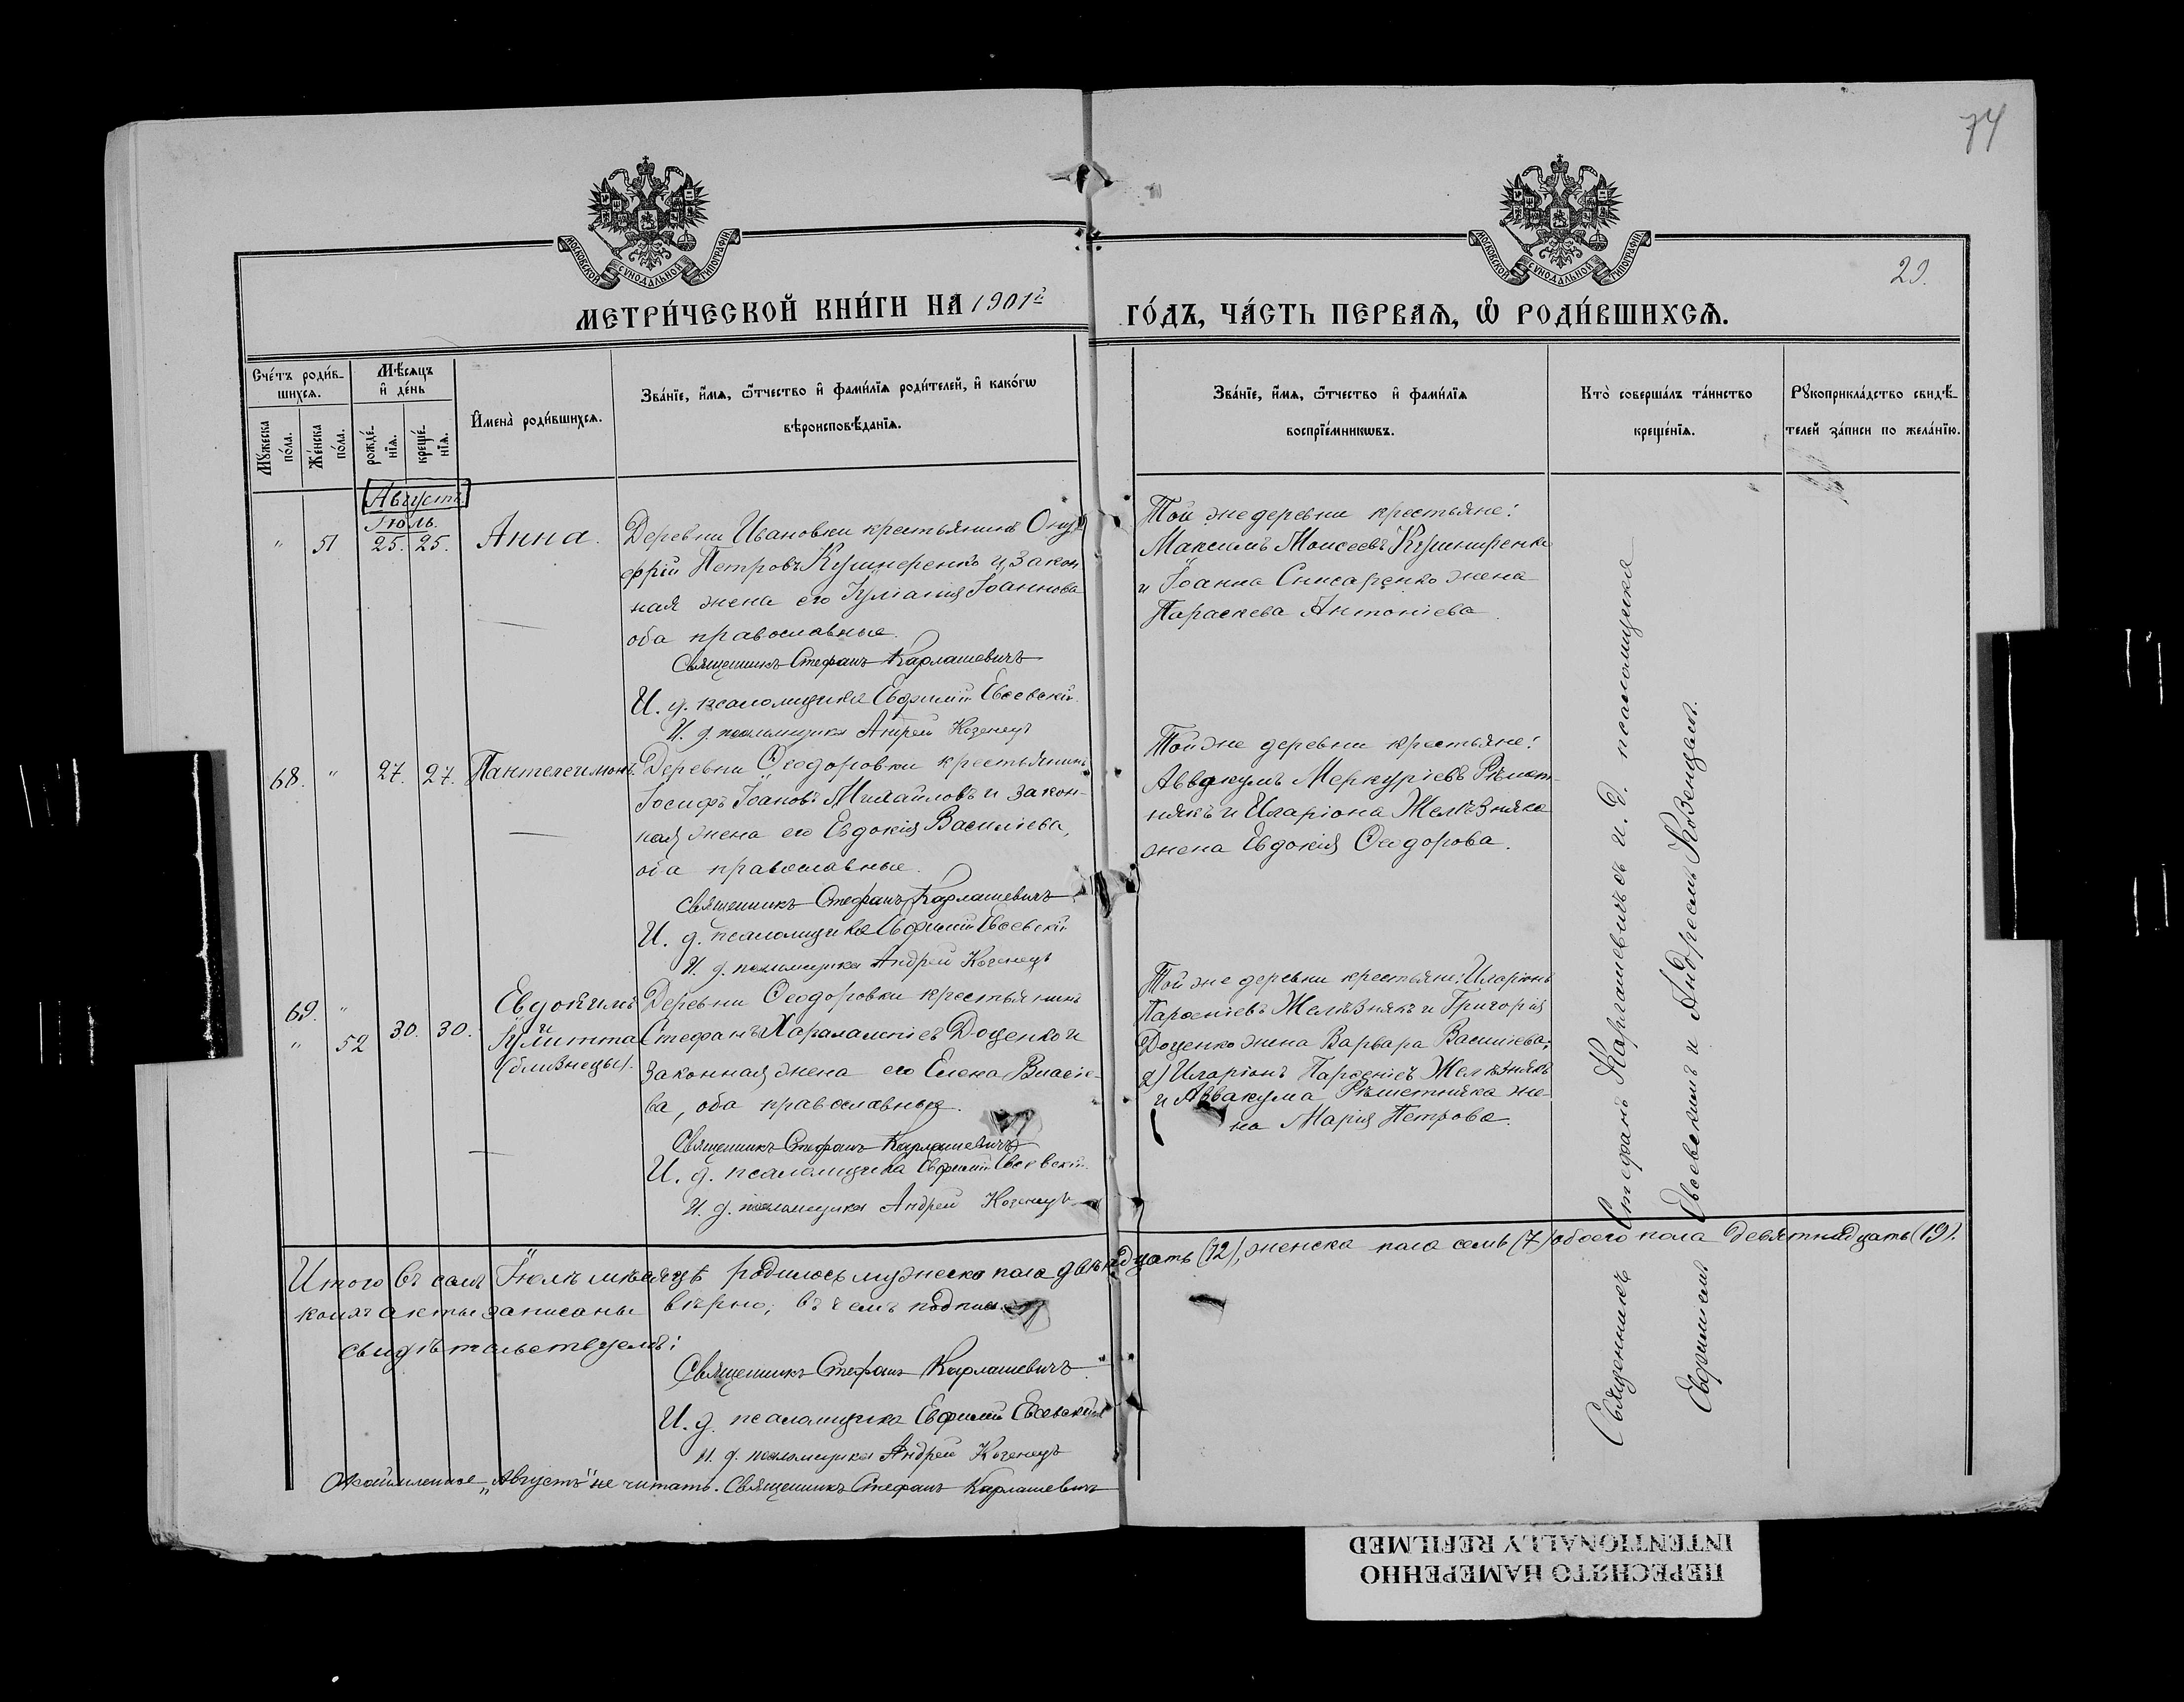 74
МОСКОВСКОЙ СѴНОДАЛЬНОЙ ТИПОГРАФІИ
МОСКОВСКОЙ СѴНОДАЛЬНОЙ ТИПОГРАФІИ
29.
МЕТРИ́ЧЕСКОЙ КНИ́ГИ НА 1901й
ГО́ДЪ, ЧА́СТЬ ПЕРВАѦ, Ѡ РОДИ́ВШИХСѦ.
Сче́тъ роди́в-
шихсѧ.
Мꙋ́жеска по́ла.
Же́нска по́ла.
Мѣ́сѧцъ
и҆ де́нь
рожде́-
нїѧ.
креще́-
нїѧ.
И҆мена̀ роди́вшихсѧ.
Зва́нїе, и҆́мѧ, ѻ҆́тчество и҆ фами́лїѧ роди́телей, и҆ како́гѡ
вѣроисповѣ́данїѧ.
Зва́нїе, и҆́мѧ, ѻ҆́тчество и҆ фами́лїѧ
воспрїе́мникѡвъ.
Кто̀ соверша́лъ та́инство
креще́нїѧ.
Рꙋкоприкла́дство свидѣ́-
телей за́писи по жела́нїю.
Августъ
Іюль.
" 51 25. 25. Анна.
Деревни Ивановки крестьянинъ Ону-
фрій Петровъ Кушнеренко и закон-
ная жена его Іуліанія Іоаннова
оба православные.
Священникъ Стефанъ Карлашевичъ
И. д. псаломщика Евфимій Евсевскій
И. д. псаломщика Андрей Козенецъ
Той же деревни крестьяне:
Максимъ Моисеевъ Кушниренко
и Іоанна Снисаренко жена
Параскева Антоніева.
68. " 27. 27. Пантелеимонъ.
Деревни Ѳеодоровки крестьянинъ
Іосифъ Іоановъ Михайловъ и закон-
ная жена его Евдокія Василіева,
оба православные.
Священникъ Стефанъ Карлашевичъ
И. д. псаломщика Евфимій Евсевскій
И. д. псаломщика Андрей Козенецъ
Той же деревни крестьяне:
Аввакумъ Меркуріевъ Рѣшет-
някъ и Иларіона Желѣзняка
жена Евдокія Ѳеодорова.
69. " Евдокимъ
и
" 52 30. 30. Іулитта
(близнецы).
Деревни Ѳеодоровки крестьянинъ
Стефанъ Харалампіевъ Доценко и
законная жена его Елена Власіе-
ва, оба православные.
Священникъ Стефанъ Карлашевичъ
И. д. псаломщика Евфимій Евсевскій
И. д. псаломщика Андрей Козенецъ
Той же деревни крестьяне: Иларіонъ
Парѳеніевъ Желѣзнякъ и Григорія
Доценко жена Варвара Василіева;
2) Иларіонъ Парѳеніевъ Желѣзнякъ
и Аввакума Рѣшетняка же-
на Марія Петрова.
Священникъ Стефанъ Карлашевичъ съ и. д. псаломщика
Евфиміемъ Евсевскимъ и Андреемъ Козенцемъ.
Итого въ семъ Іюлѣ мѣсяцѣ родилось мужеска пола двѣнадцать (12), женска пола семь (7) обоего пола девятнадцать (19).
коихъ акты записаны вѣрно, въ чемъ подписомъ
свидѣтельствуемъ:
Священникъ Стефанъ Карлашевичъ
И. д. псаломщика Евфимій Евсевскій
И. д. псаломщика Андрей Козенецъ
"Августъ" не читать. Священникъ Стефанъ Карлашевичъ
ПЕРЕСНЯТО НАМЕРЕННО
INTENTIONALLY REFILMED